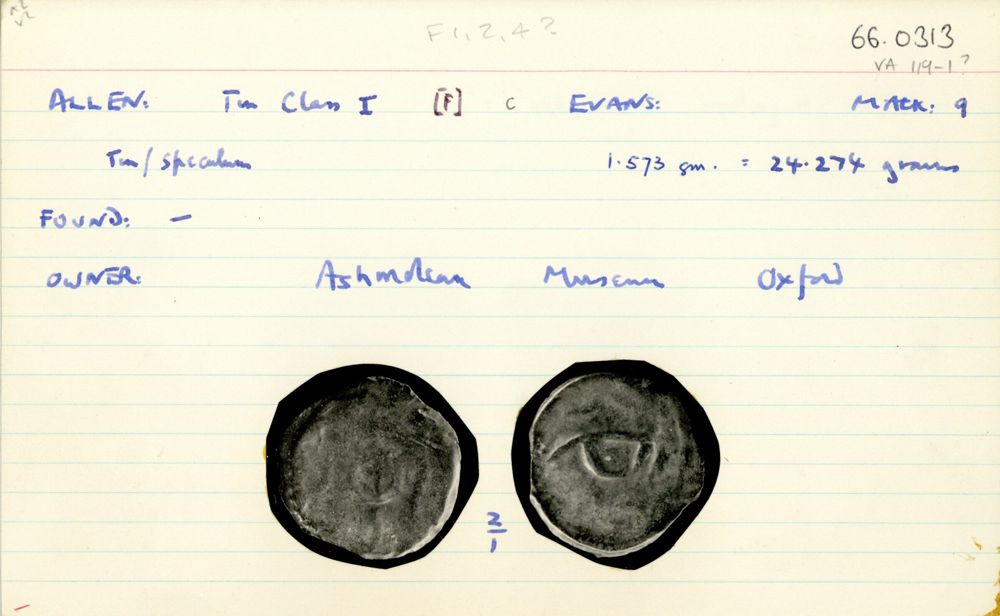 F1, 2, 4?
66.0313
VA 119-1?
ALLEN: Tin Class I [F] C EVANS: MACK: 9
Tin/speculum 1.573 gm. = 24.274 grains
FOUND: —
OWNER: Ashmolean Museum Oxford
2/1